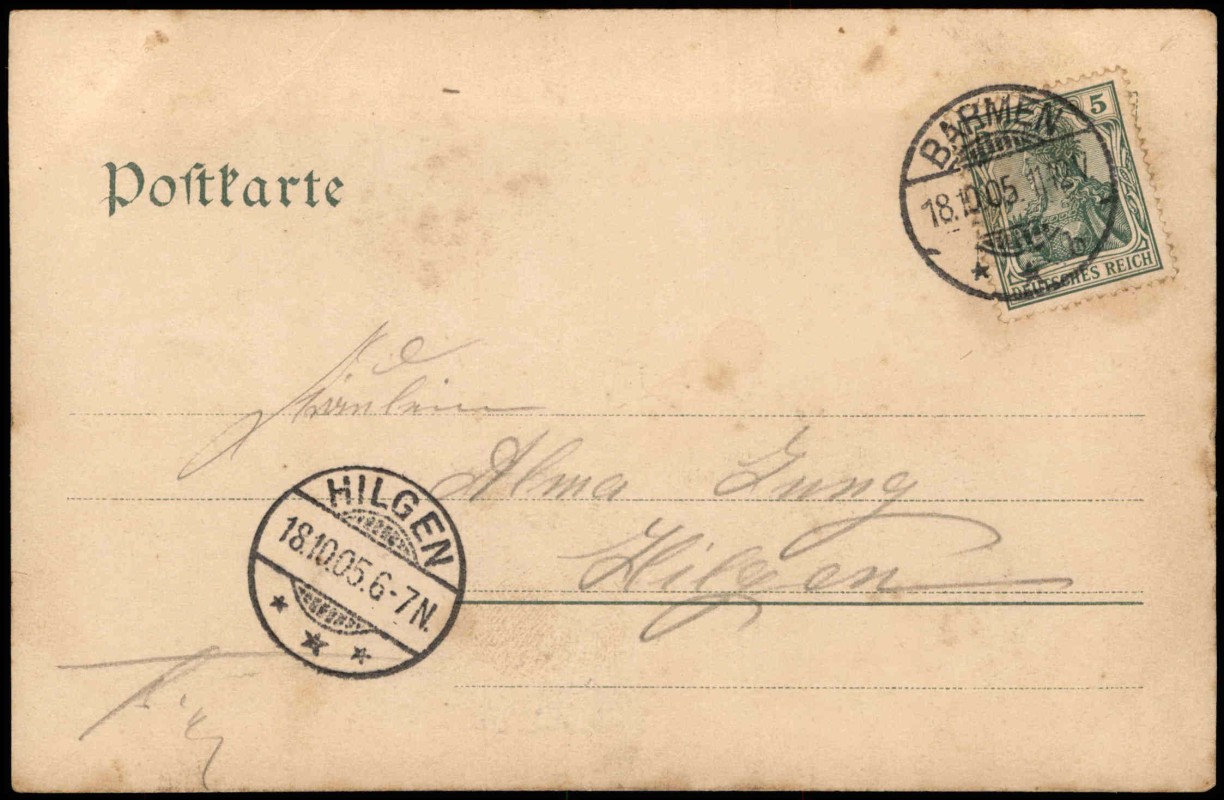 Postkarte
BARMEN
18.10.05. 11-12 V
5
DEUTSCHES REICH
Fräulein
Alma Jung
Hilgen
HILGEN
18.10.05. 6-7 N.